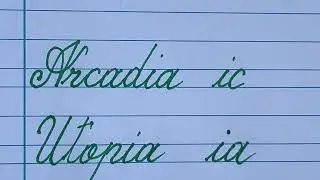 Arcadia ic
Utopia ia